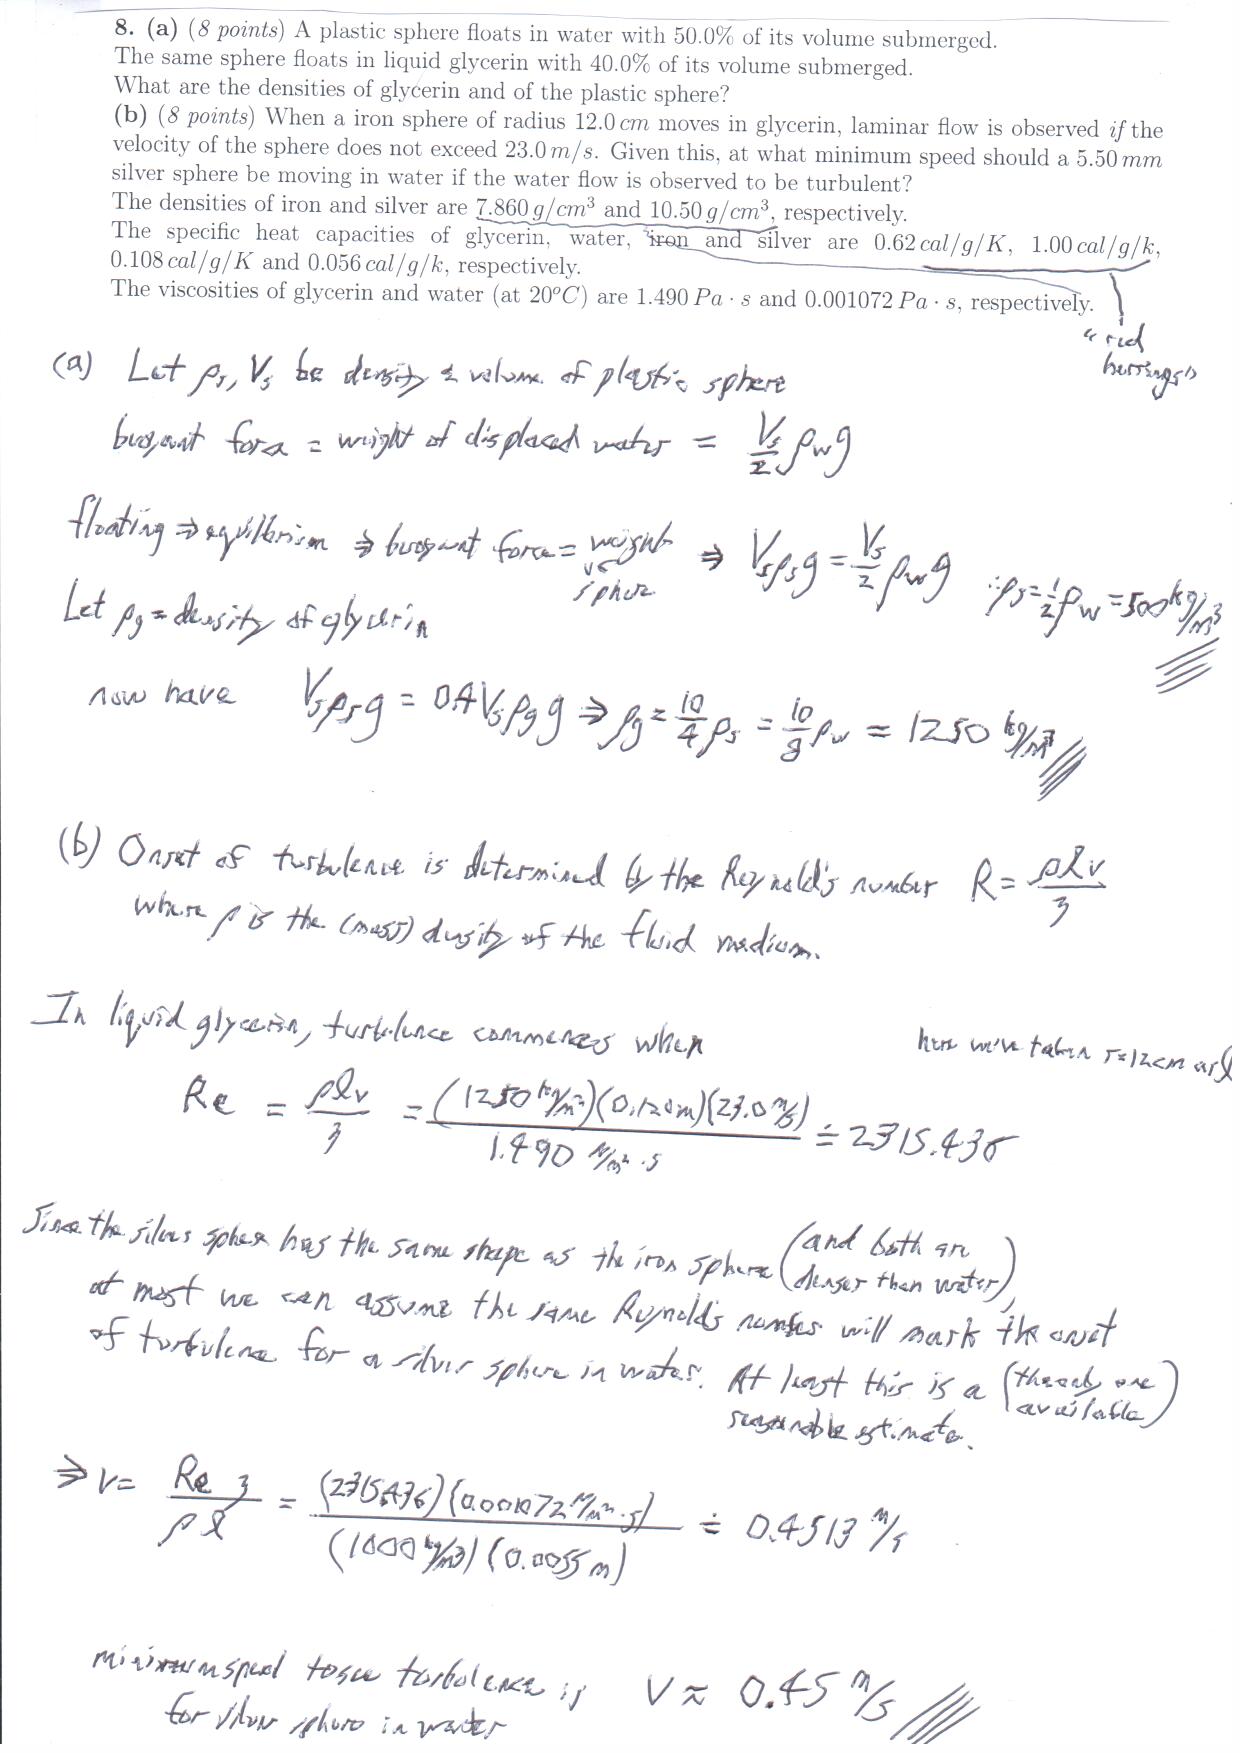 8. (a) (8 points) A plastic sphere floats in water with 50.0% of its volume submerged.
The same sphere floats in liquid glycerin with 40.0% of its volume submerged.
What are the densities of glycerin and of the plastic sphere?
(b) (8 points) When a iron sphere of radius 12.0 cm moves in glycerin, laminar flow is observed if the
velocity of the sphere does not exceed 23.0 m/s. Given this, at what minimum speed should a 5.50 mm
silver sphere be moving in water if the water flow is observed to be turbulent?
The densities of iron and silver are 7.860 g/cm³ and 10.50 g/cm³, respectively.
The specific heat capacities of glycerin, water, iron and silver are 0.62 cal/g/K, 1.00 cal/g/k,
0.108 cal/g/K and 0.056 cal/g/k, respectively.
The viscosities of glycerin and water (at 20°C) are 1.490 Pa · s and 0.001072 Pa · s, respectively.
"red
herrings"
(a) Let ρs, Vs be density & volume of plastic sphere
buoyant force = weight of displaced water = Vs/2 ρw g
floating ⇒ equilibrium ⇒ buoyant force = weight ⇒ Vs ρs g = Vs/2 ρw g ∴ ρs = 1/2 ρw = 500 kg/m³
sphere
Let ρg = density of glycerin
now have Vs ρs g = 0.4 Vs ρg g ⇒ ρg = 10/4 ρs = 10/8 ρw = 1250 kg/m³
(b) Onset of turbulence is determined by the Reynold's number R = ρlv/η
where ρ is the (mass) density of the fluid medium.
In liquid glycerin, turbulence commences when
here we've taken r=12cm as l
Re = ρlv/η = (1250 kg/m³)(0.120m)(23.0 m/s) / 1.490 N/m² · s ≐ 2315.436
Since the silver sphere has the same shape as the iron sphere (and both are denser than water),
at most we can assume the same Reynold's number will mark the onset
of turbulence for a silver sphere in water. At least this is a (the only one available)
reasonable estimate.
⇒ v = Re η / ρl = (2315.436)(0.001072 N/m² · s) / (1000 kg/m³)(0.0055 m) ≐ 0.4513 m/s
minimum speed to see turbulence is v ≈ 0.45 m/s
for silver sphere in water